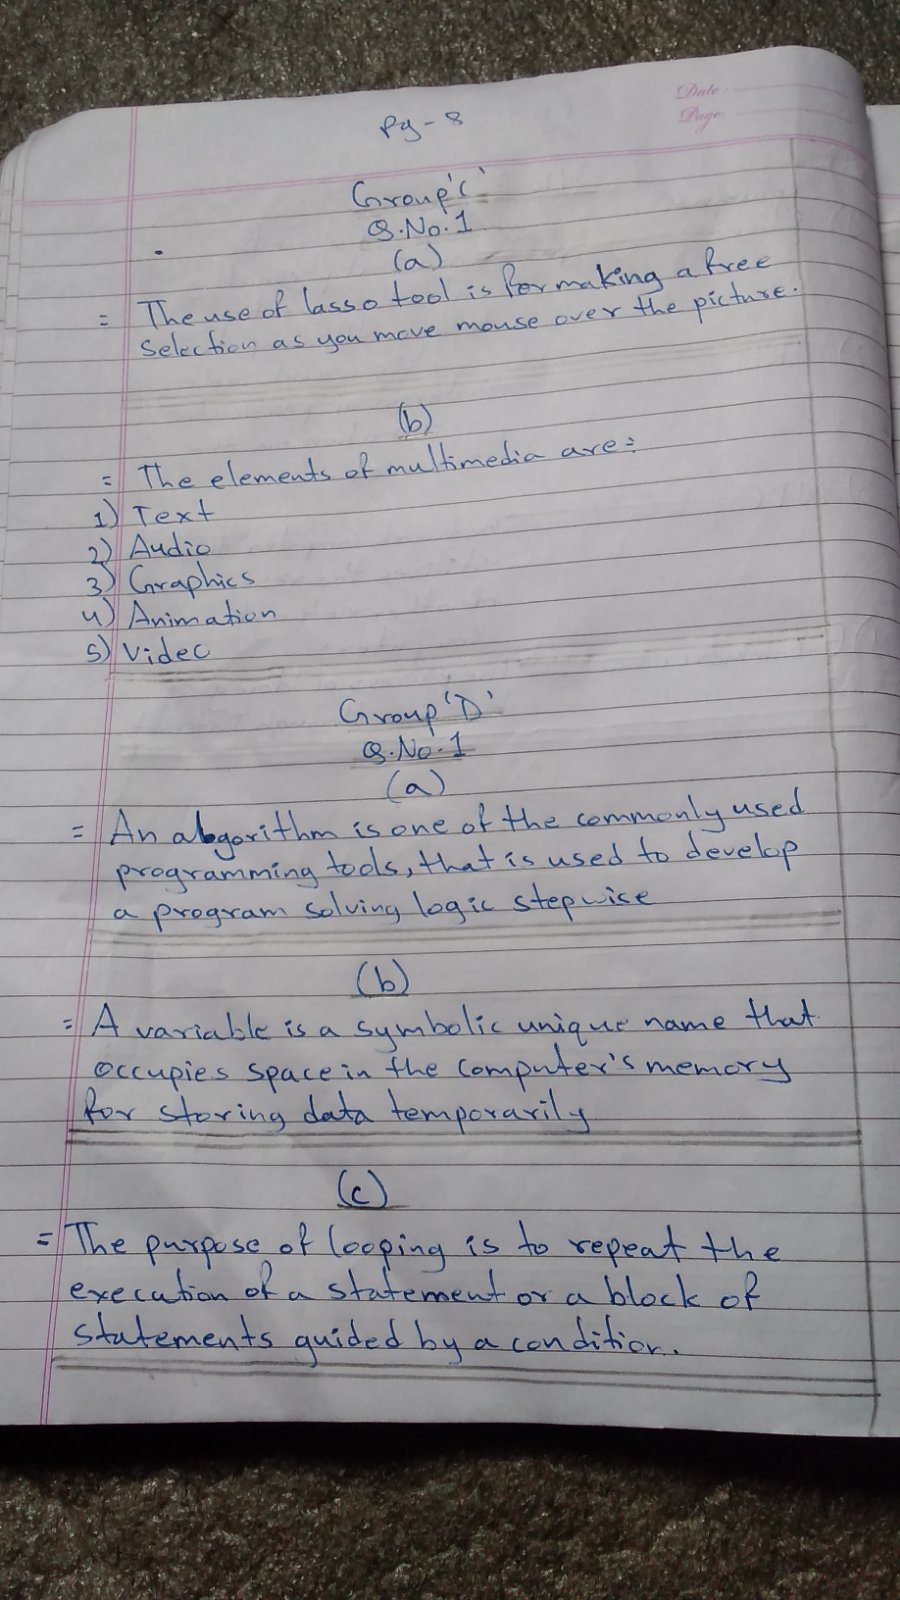 Date:
Page:
Pg-8
Group 'C'
Q.No.1
(a)
= The use of lasso tool is for making a free
selection as you move mouse over the picture.
(b)
= The elements of multimedia are:
1) Text
2) Audio
3) Graphics
4) Animation
5) Video
Group 'D'
Q.No.1
(a)
= An algorithm is one of the commonly used
programming tools, that is used to develop
a program solving logic stepwise
(b)
= A variable is a symbolic unique name that
occupies space in the computer's memory
for storing data temporarily
(c)
= The purpose of looping is to repeat the
execution of a statement or a block of
statements guided by a condition.